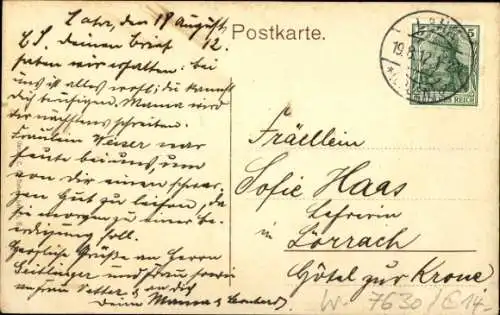 Lahr, den 18 August
12.
L S. deinen Brief
haben wir erhalten: bei
uns ist alles wohl; du kannst
dich Mama wird
dir nächstens schreiben.
Fräulein Weiser war
heute bei uns, um
von dir einen schwar-
zen Hut zu leihen, da
sie morgen zu einer Be-
erdigung soll.
Herzliche Grüße an Herrn
und Frau sowie
an Frau Vetter & an dich
Deine Mama & Leonhard.
Postkarte.
LAHR
19.8.12.
5
REICH
Fräullein
Sofie Haas
Lehrerin
in Lörrach
Hôtel zur Krone
W- 7630/€14-